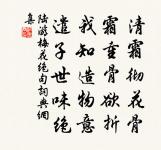 清霜彻花骨
霜重骨欲折
我知造物意
遣子世味绝
陆游梅花绝句词典网
集